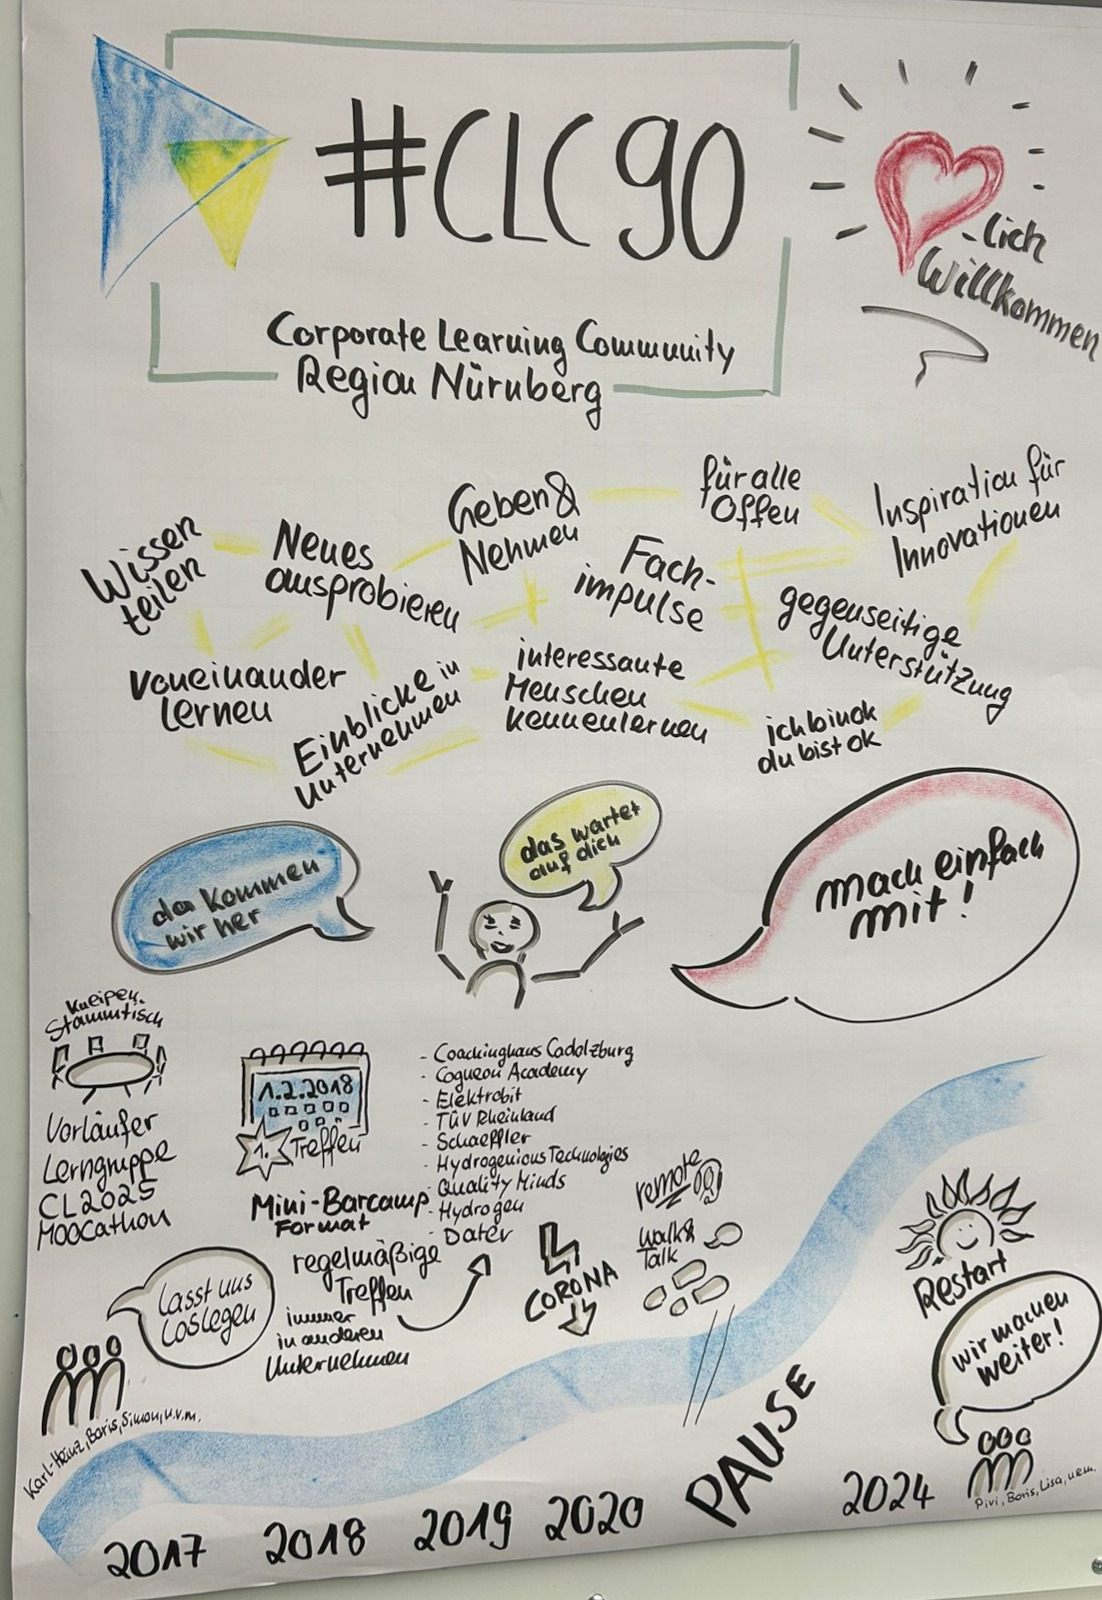 #CLC90
Corporate Learning Community
Region Nürnberg
-lich
Willkommen
Wissen
teilen
Neues
ausprobieren
Geben &
Nehmen
für alle
Offen
Inspiration für
Innovationen
Fach-
impulse
gegenseitige
Unterstützung
Voneinander
lernen
Einblicke in
Unternehmen
interessante
Menschen
kennenlernen
ich bin ok
du bist ok
da kommen
wir her
das wartet
auf dich
mach einfach
mit!
Kneipen-
Stammtisch
Vorläufer
Lerngruppe
CL2025
MOOCathon
lasst uns
loslegen
Karl-Heinz, Boris, Simon, u.v.m.
1.2.2018
1. Treffen
Mini-Barcamp
Format
regelmäßige
Treffen
immer
in anderen
Unternehmen
- Coachinghaus Cadolzburg
- Cogneon Academy
- Elektrobit
- TÜV Rheinland
- Schaeffler
- Hydrogenious Technologies
- Quality Minds
- Hydrogen
- Datev
CORONA
remote
Walk &
Talk
Restart
wir machen
weiter!
Pivi, Boris, Lisa, u.v.m.
2017
2018
2019
2020
PAUSE
2024